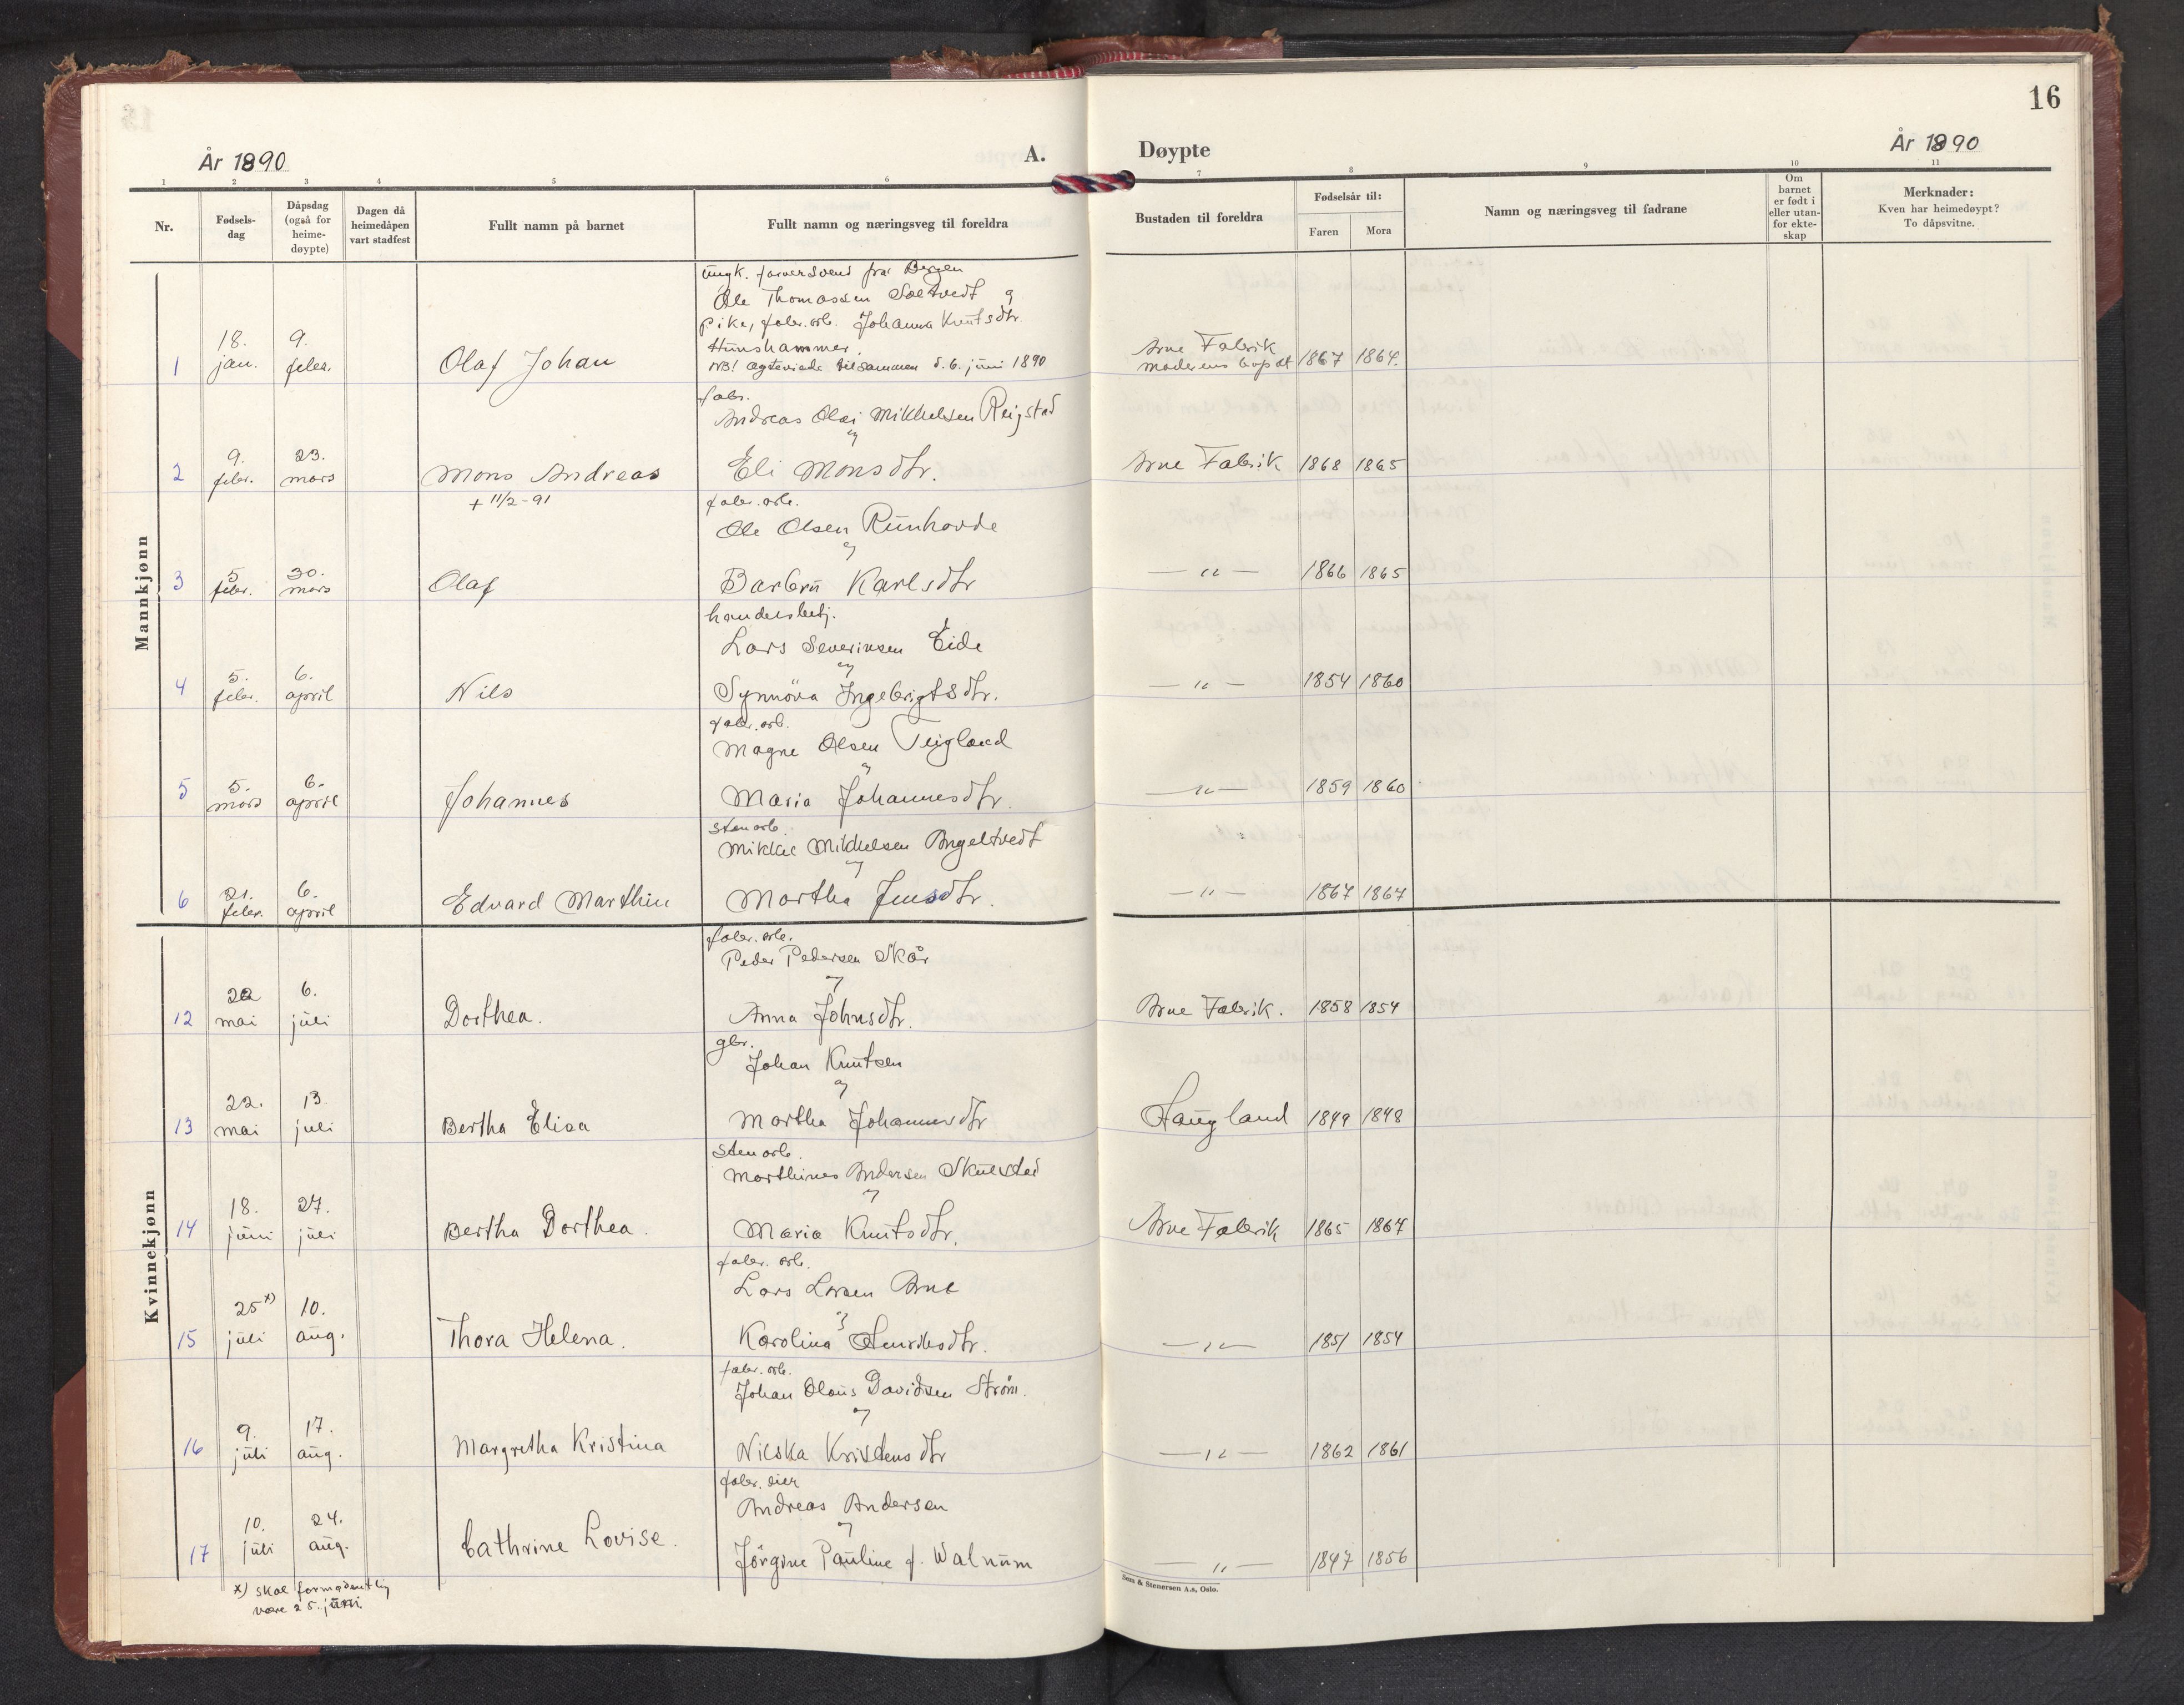 16
År 1890
A.
Døypte
År 1890
1 2 3 4 5 6 7 8 9 10 11
Nr.
Fødsels-
dag
Dåpsdag
(også for
heime-
døypte)
Dagen då
heimedåpen
vart stadfest
Fullt namn på barnet
Fullt namn og næringsveg til foreldra
Bustaden til foreldra
Fødselsår til:
Faren Mora
Namn og næringsveg til fadrane
Om
barnet
er født i
eller utan-
for ekte-
skap
Merknader:
Kven har heimedøypt?
To dåpsvitne.
Mannkjønn
ungk. farversvend fra Bergen
Ole Thomassen Soltvedt og
pike, fabr. arb. Johanna Knutsdtr
Hunshammer.
NB! Ægteviede tilsammen d. 6. juni 1890
1 18. jan. 9. febr. Olaf Johan Arne Fabrik
moderens bopæl 1867 1864.
fabr.
Andreas Olai Mikkelsen Reigstad
og
2 9. febr. 23. mars Mons Andreas Eli Monsdtr. Arne Fabrik 1868 1865
+ 11/2-91
fabr. arb.
Ole Olsen Runhovde
og
3 5. febr. 30. mars Olaf Barbru Karlsdtr — " — 1866 1865
handelsbetj.
Lars Severinsen Eide
og
4 5. febr. 6. april Nils Synnöva Ingebrigtsdtr. — " — 1854 1860
fabr. arb.
Magne Olsen Teigland
og
5 5. mars 6. april Johannes Maria Johannesdtr. — " — 1859 1860
stenarb.
Mikkel Mikkelsen Angeltvedt
og
6 21. febr. 6. april Edvard Marthin Martha Jensdtr. — " — 1867 1867
Kvinnekjønn
fabr. arb.
Peder Pedersen Skår
og
12 mai 6. juli Dorthea. Anna Johnsdtr. Arne Fabrik. 1858 1854
gbr.
Johan Knutsen
og
13 22. mai 13. juli Bertha Elisa Martha Johannesdtr Haugland 1849 1848
stenarb.
Marthinus Andersen Skulstad
og
14 18. juni 27. juli Bertha Dorthea. Maria Knutsdtr. Arne Fabrik 1865 1867
fabr. arb.
Lars Larsen Arne
og
15 25 x) juli 10. aug. Thora Helena. Karolina Henriksdtr. — " — 1851 1854
fabr. arb.
Johan Olaus Davidsen Strøm.
og
16 9. juli 17. aug. Margretha Kristina Nilska Kristensdtr — " — 1862 1861
fabr. eier
Andreas Andersen
og
17 10. juli 24. aug. Cathrine Lovise. Jörgine Pauline f. Walnum — " — 1847 1856
x) skal formodentlig
være 25. juni.
Sem & Stenersen A.s, Oslo.